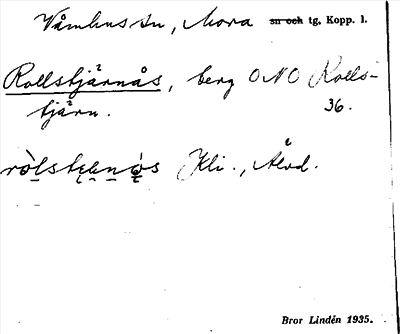 Våmhus sn, Mora sn och tg, Kopp. l.
Rollstjärnås, berg ONO Rolls-
tjärn. 36.
Kli., Älvd.
Bror Lindén 1935.